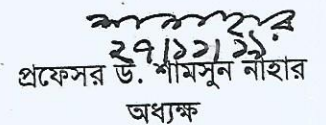 ২৭/১১/১৯
প্রফেসর ড. শামসুন নাহার
অধ্যক্ষ